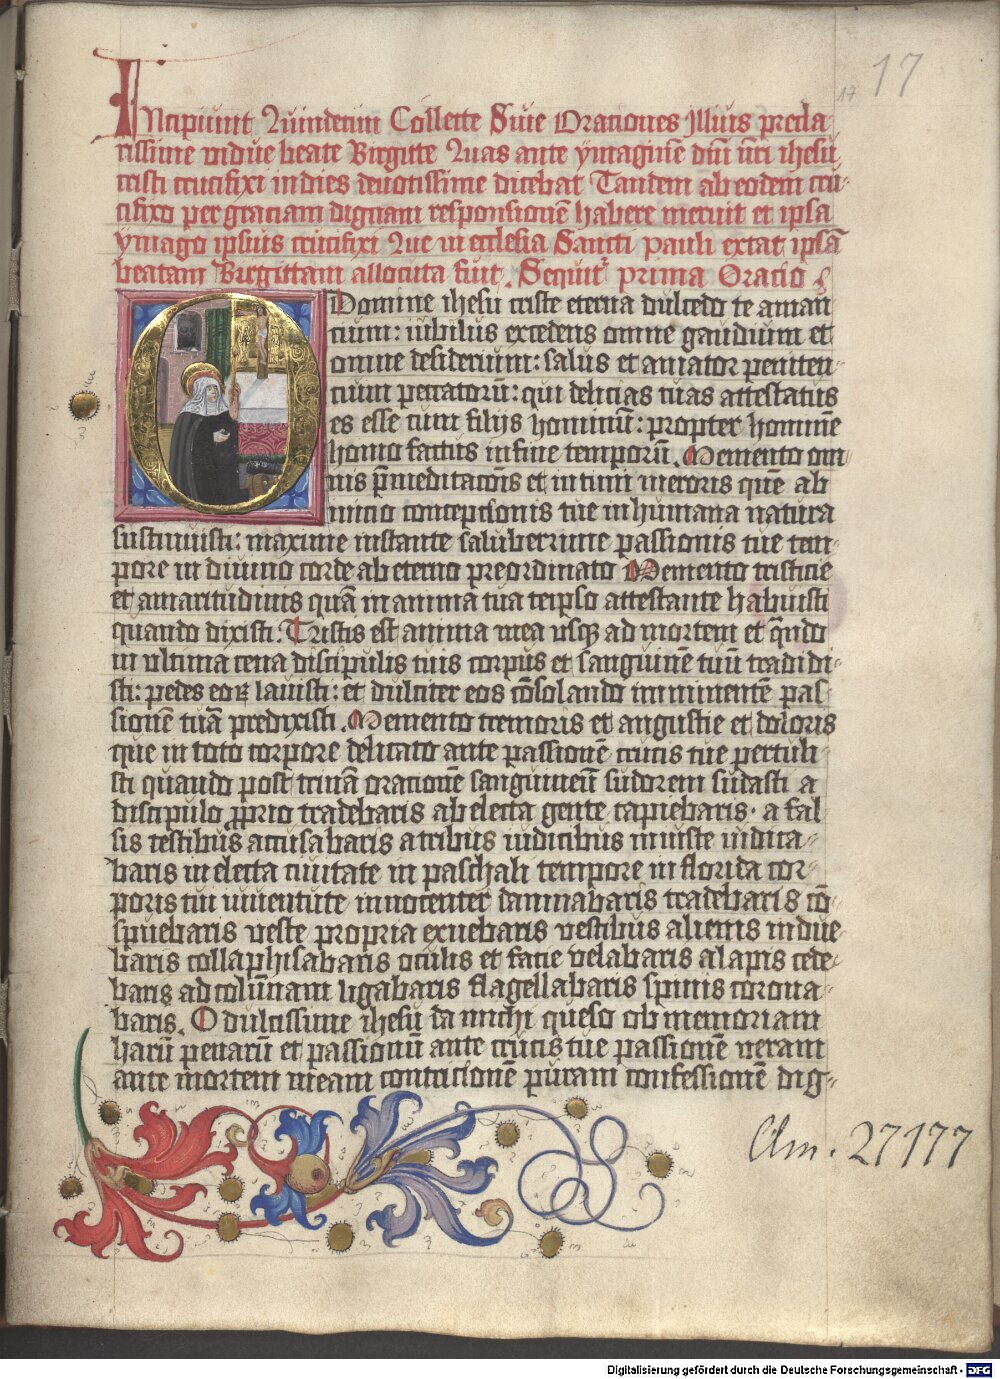 17
17
INcipiunt Quindecim Collecte Siue Orationes Illius precla
rissime vidue beate Birgitte Quas ante ymaginē dñi nr̄i ihesu
cristi crucifixi indies deuotissime dicebat Tandem ab eodem cru-
cifixo per graciam dignam responsionē habere meruit et ipsa
ymago ipsius crucifixi Que in ecclesia Sancti pauli extat ipsā
beatam Birgittam allocuta fuit. Sequit᷑ prima Oratio
O Domine ihesu criste eterna dulcedo te aman
cium: iubilus excedens omne gaudium et
omne desiderium: salus et amator peniten-
cium peccatorū: qui delicias tuas attestatus
es esse cum filijs hominū: propter hominē
homo factus in fine temporū. Memento om
nis p̄meditacōis et intimi meroris quē ab
inicio concepcionis tue in humana natura
sustinuisti: maxime instante saluberrime passionis tue tem-
pore in diuino corde ab eterno preordinato Memento tristicie
et amaritudinis quā in anima tua teipso attestante habuisti
quando dixisti: Tristis est anima mea usq̢ ad mortem et q̄ndo
in vltima cena discipulis tuis corpus et sanguinē tuū tradidi-
sti: pedes eoꝝ lauisti: et dulciter eos cōsolando imminentē pas-
sionē tuā predixisti. Memento tremoris et angustie et doloris
que in toto corpore delicato ante passionē crucis tue pertuli
sti quando post trinā orationē sanguineū sudorem sudasti a
discipulo ꝓprio tradebaris ab electa gente capiebaris· a fal-
sis testibus accusabaris a tribus iudicibus iniuste iudica-
baris in electa ciuitate in paschali tempore in florida cor-
poris tui iuuentute innocenter damnabaris tradebaris cō-
spuebaris veste propria exuebaris vestibus alienis indue
baris collaphisabaris oculis et facie velabaris alapis cede-
baris ad colūnam ligabaris flagellabaris spinis corona-
baris. O dulcissime ihesu da michi queso ob memoriam
harū penarū et passionū ante crucis tue passionē veram
ante mortem meam contricionē puram confessionē dig-
Clm. 27177
Digitalisierung gefördert durch die Deutsche Forschungsgemeinschaft - DFG